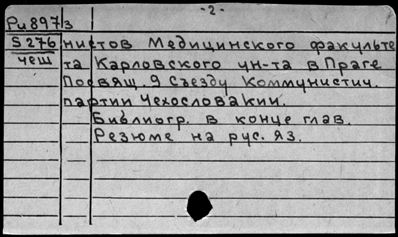 -2-
Ри8973
S276 нистов Медицинского факульте
чеш та Карловского ун-та в Праге
Посвящ. 9 съезду Коммунистич.
партии Чехословакии.
Библиогр. в конце глав.
Резюме на рус. яз.